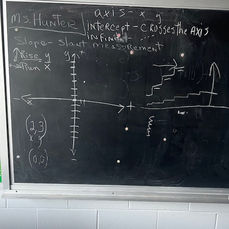 Ms Hunter
axis - x y
INTERCEPT - CROSSES the AXIS
INFINIT
Slope - slant measurement
Rise y
Run x
y +
+
(0,0)